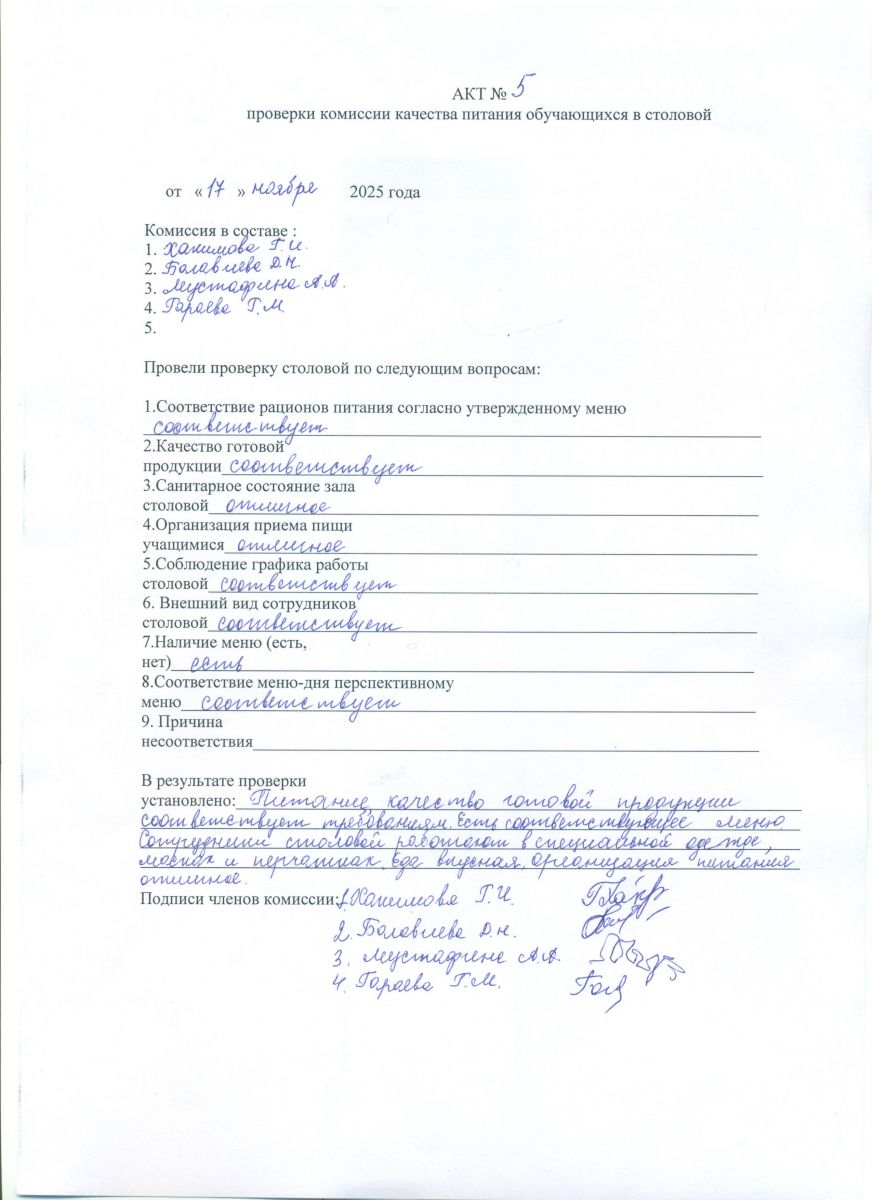 АКТ № 5
проверки комиссии качества питания обучающихся в столовой
от « 17 » ноября 2025 года
Комиссия в составе :
1. Хакимова Г.И.
2. Балавиева Д.Н.
3. Мустафина А.А.
4. Гараева Г.М.
5.
Провели проверку столовой по следующим вопросам:
1.Соответствие рационов питания согласно утвержденному меню
соответствует
2.Качество готовой
продукции соответствует
3.Санитарное состояние зала
столовой отличное
4.Организация приема пищи
учащимися отличное
5.Соблюдение графика работы
столовой соответствует
6. Внешний вид сотрудников
столовой соответствует
7.Наличие меню (есть,
нет) есть
8.Соответствие меню-дня перспективному
меню соответствует
9. Причина
несоответствия
В результате проверки
установлено: Питание, качество готовой продукции
соответствует требованиям. Есть соответствующее меню.
Сотрудники столовой работают в специальной одежде,
масках и перчатках. Еда вкусная. Организация питания
отличное.
Подписи членов комиссии: 1. Хакимова Г.И.
2. Балавиева Д.Н.
3. Мустафина А.А.
4. Гараева Г.М.